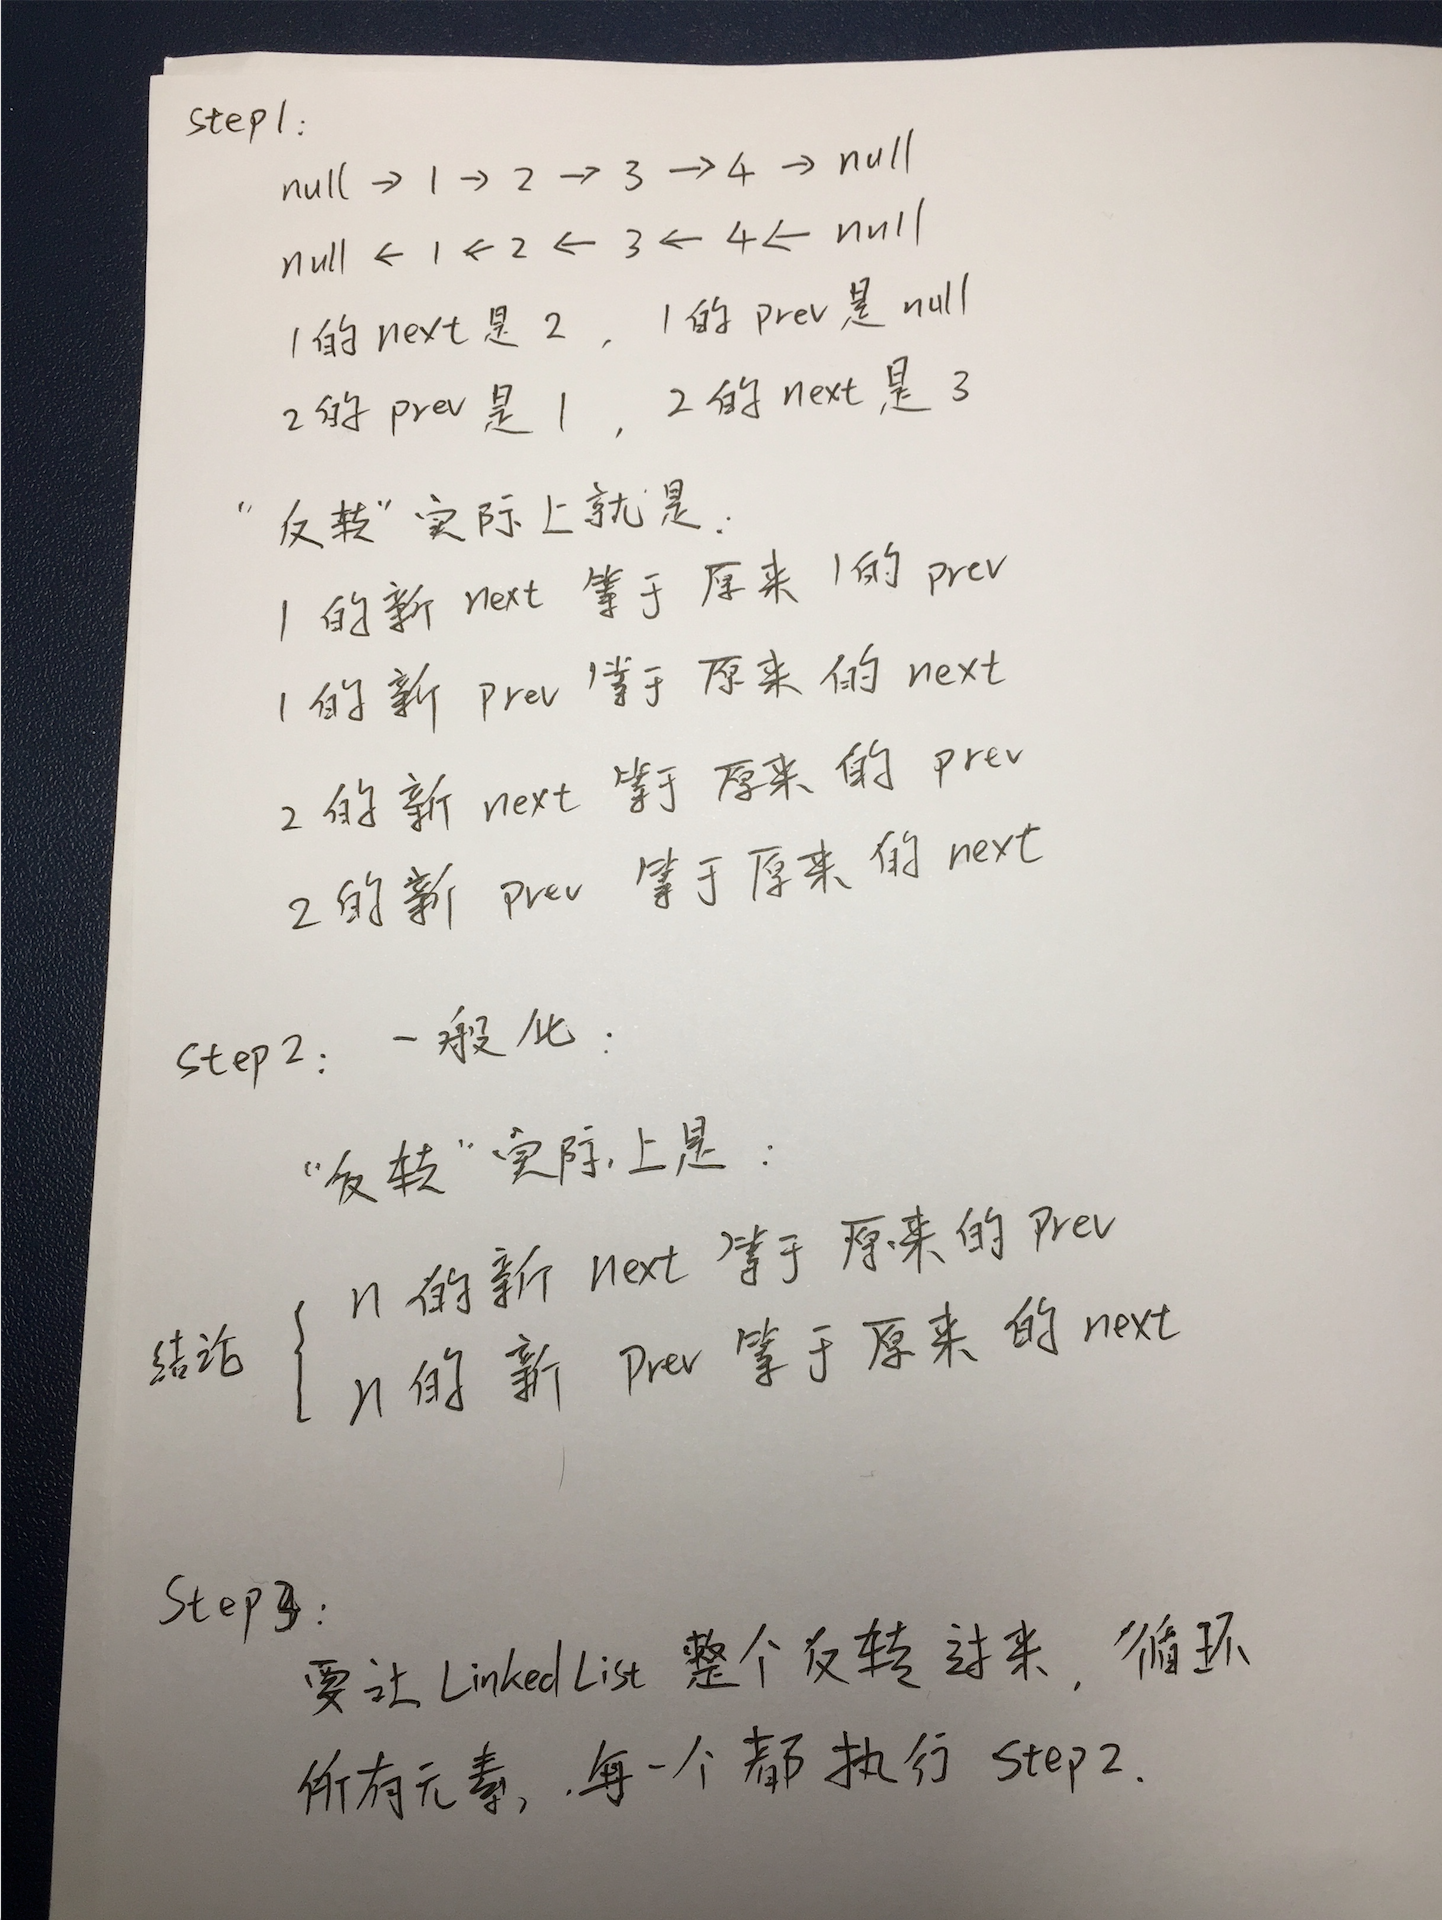 step1:
null → 1 → 2 → 3 → 4 → null
null ← 1 ← 2 ← 3 ← 4 ← null
1的next是2, 1的prev是null
2的prev是1, 2的next是3
"反转"实际上就是:
1的新next等于原来1的prev
1的新prev等于原来的next
2的新next等于原来的prev
2的新prev等于原来的next
Step2: 一般化:
"反转"实际上是:
n的新next等于原来的prev
结论
n的新prev等于原来的next
Step3:
要让LinkedList整个反转过来, 循环
所有元素, 每一个都执行step2.